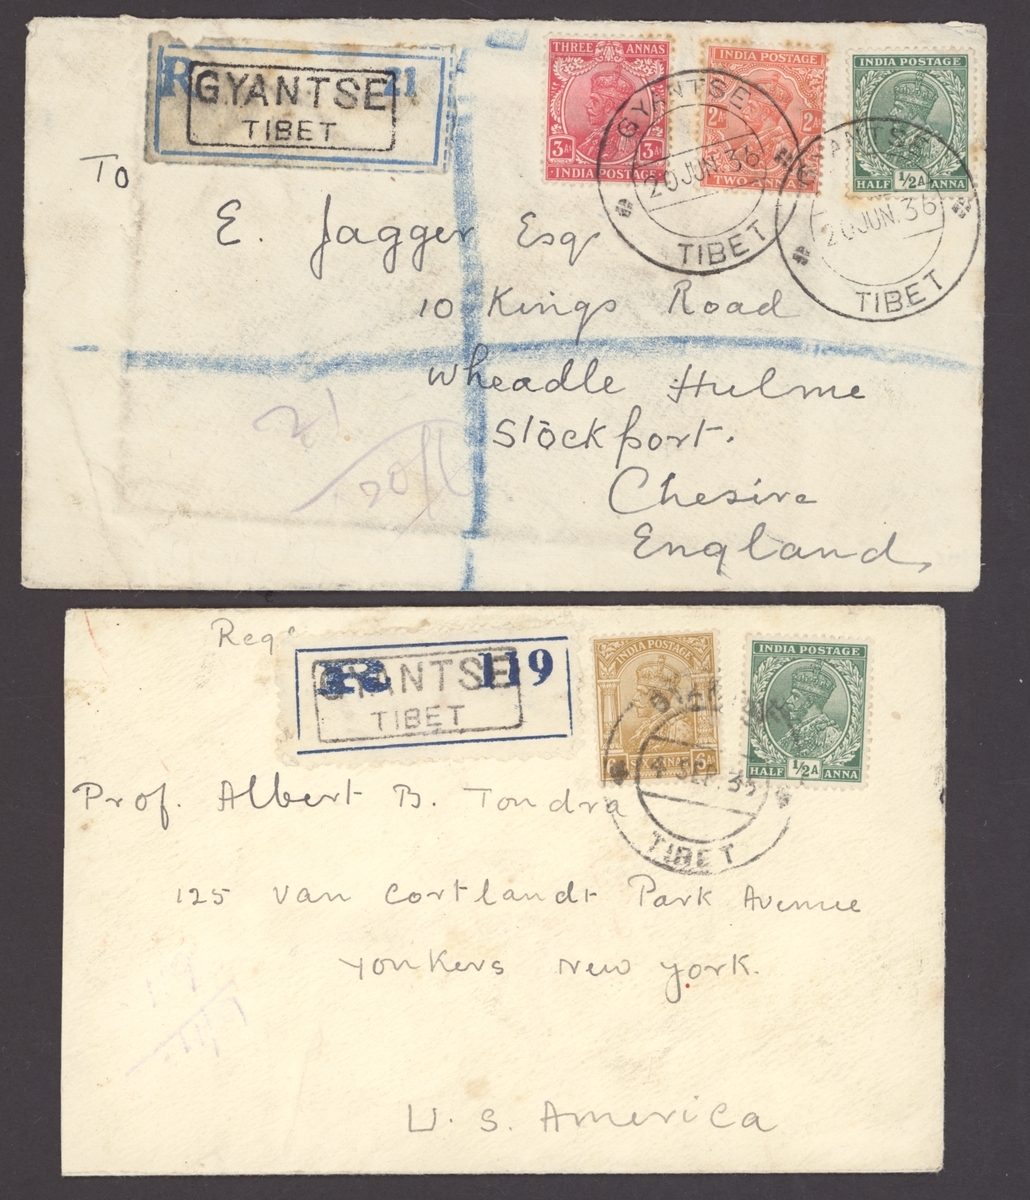 R 21
GYANTSE
TIBET
THREE ANNAS
3As 3As
INDIA POSTAGE
INDIA POSTAGE
2As 2As
TWO ANNAS
INDIA POSTAGE
HALF 1/2A ANNA
GYANTSE
20 JUN. 36
TIBET
GYANTSE
20 JUN. 36
TIBET
To
E. Jagger Esq
10 Kings Road
Wheadle Hulme
Stockport.
Chesire
England,
21
Reg
R 119
GYANTSE
TIBET
INDIA POSTAGE
6As SIX ANNAS 6As
INDIA POSTAGE
HALF 1/2A ANNA
SEP. 35
TIBET
Prof. Albert B. Tondra
125 Van Cortlandt Park Avenue
Yonkers New York.
U. S. America